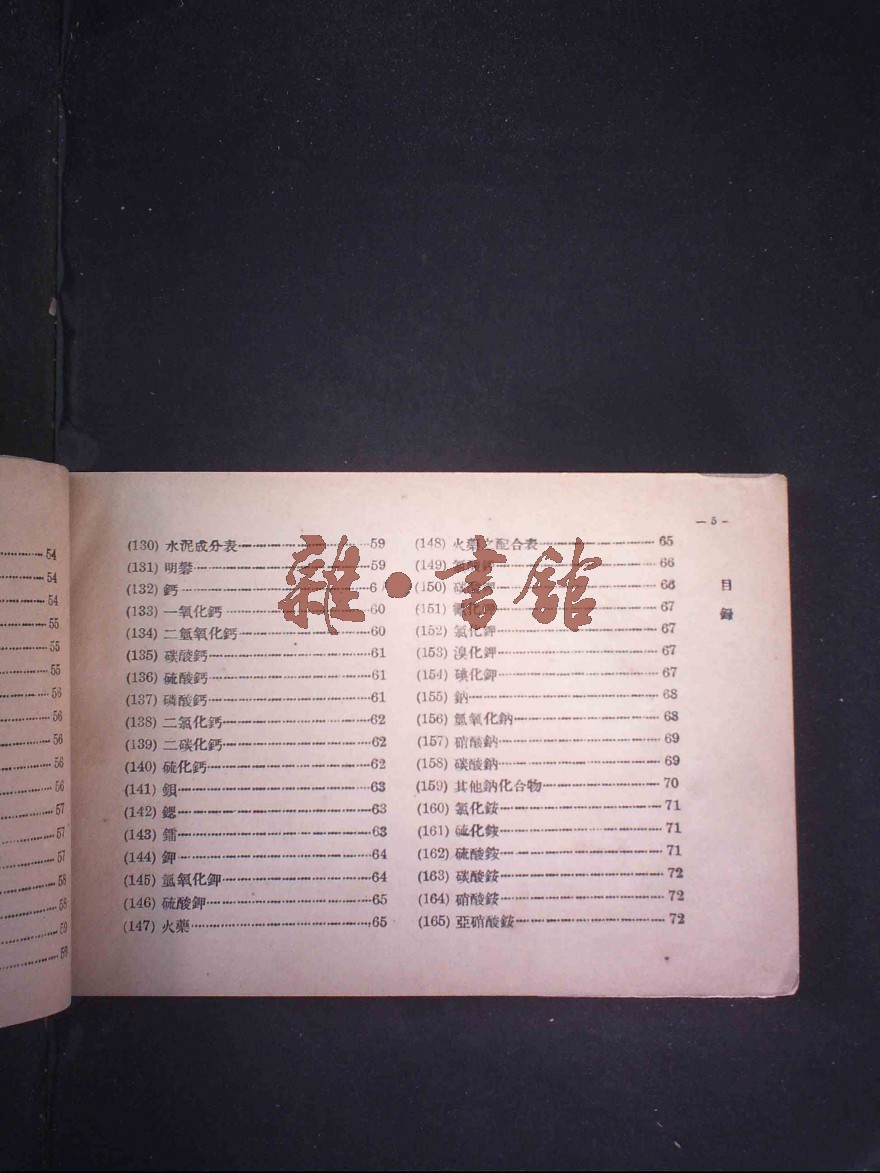 54
54
54
55
55
55
56
56
56
56
56
57
57
57
58
58
59
59
— 5 —
目錄
(130) 水泥成分表 59
(131) 明礬 59
(132) 鈣 6
(133) 一氧化鈣 60
(134) 二氫氧化鈣 60
(135) 碳酸鈣 61
(136) 硫酸鈣 61
(137) 磷酸鈣 61
(138) 二氯化鈣 62
(139) 二碳化鈣 62
(140) 硫化鈣 62
(141) 鋇 63
(142) 鍶 63
(143) 鐳 63
(144) 鉀 64
(145) 氫氧化鉀 64
(146) 硫酸鉀 65
(147) 火藥 65
(148) 火藥之配合表 65
(149) 66
(150) 66
(151) 67
(152) 氯化鉀 67
(153) 溴化鉀 67
(154) 碘化鉀 67
(155) 鈉 68
(156) 氫氧化鈉 68
(157) 硝酸鈉 69
(158) 碳酸鈉 69
(159) 其他鈉化合物 70
(160) 氯化銨 71
(161) 硫化銨 71
(162) 硫酸銨 71
(163) 碳酸銨 72
(164) 硝酸銨 72
(165) 亞硝酸銨 72
雜·書館